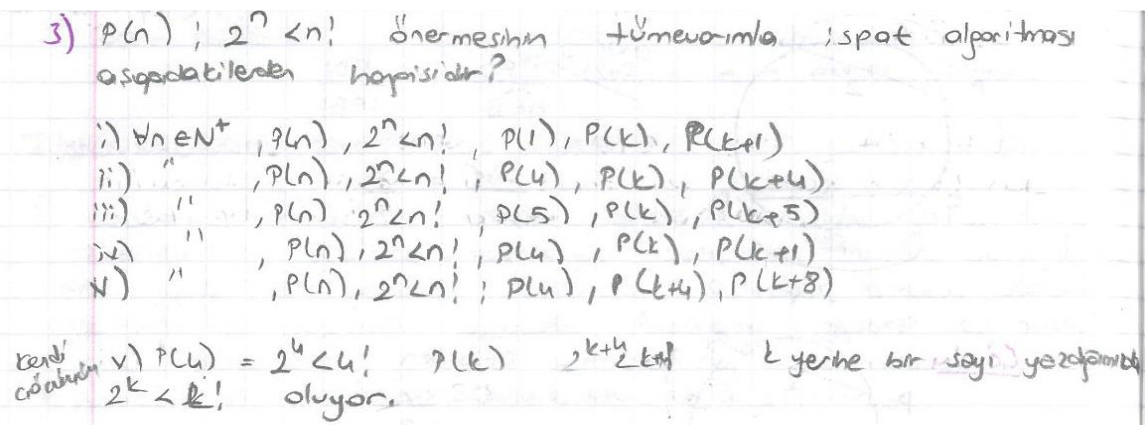 3) P(n) ; 2^n < n! önermesinin tümevarımla ispat algoritması
aşağıdakilerden hangisidir?
i) ∀n∈N⁺, P(n), 2^n < n!, P(1), P(k), P(k+1)
ii) " , P(n), 2^n < n!, P(4), P(k), P(k+4)
iii) " , P(n) 2^n < n!, P(5), P(k), P(k+5)
iv) " , P(n), 2^n < n!, P(4), P(k), P(k+1)
v) " , P(n), 2^n < n!; P(4), P(k+4), P(k+8)
kendi v) P(4) = 2^4 < 4! P(k) 2^{k+4} k yerine bir sayı yazdığımızda
2^k < k! oluyor.